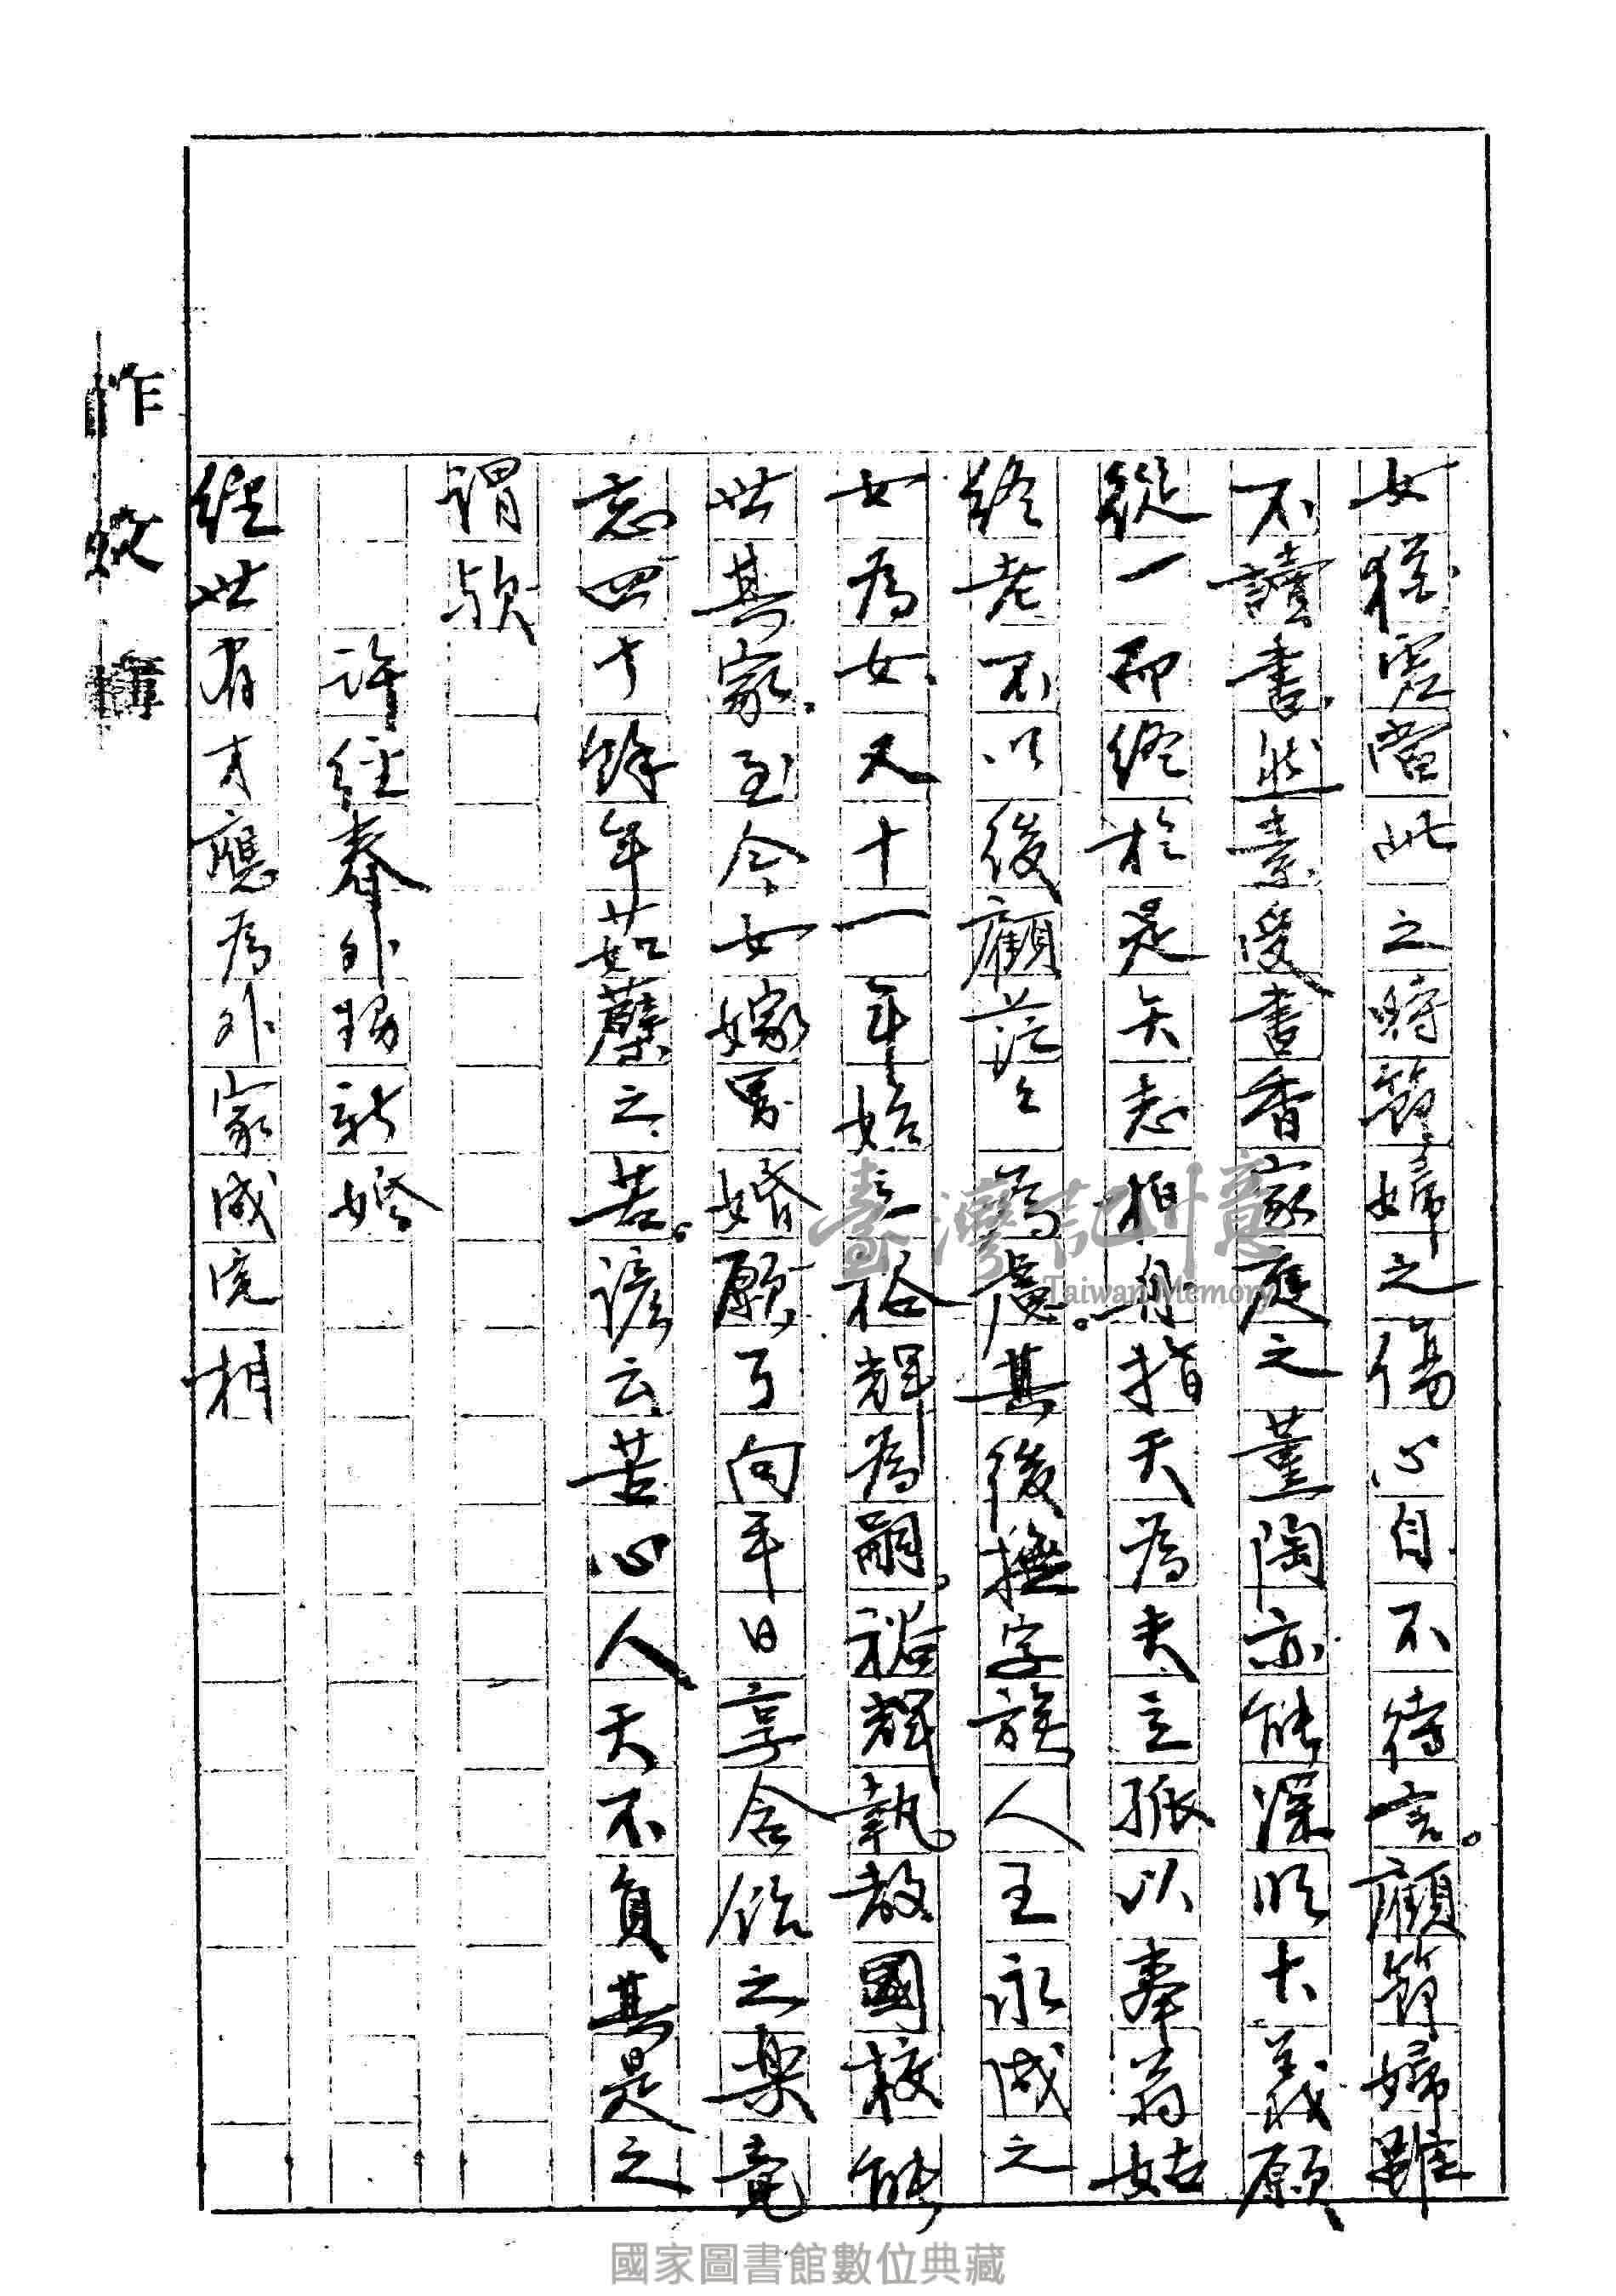 女。猶[?]當此之時節婦之傷心自不待言。顧節婦雖
不讀書然素受書香家庭之薰陶亦能深明大義願
從一而終於是矢志相舟指天為夫立孤以奉翁姑
終老不以後顧茫々為慮。其後撫字族人王永成之
女為女又十一年始立裕輝為嗣。裕輝執教國校能
世其家至今女嫁男婚願了向平日享含飴之樂竟
忘四十餘年茹蘗之苦。諺云苦心人天不負其是之
謂歟
許經春外甥新婚
經世有才應為外家成宅相
作文簿
臺灣記憶
Taiwan Memory
國家圖書館數位典藏